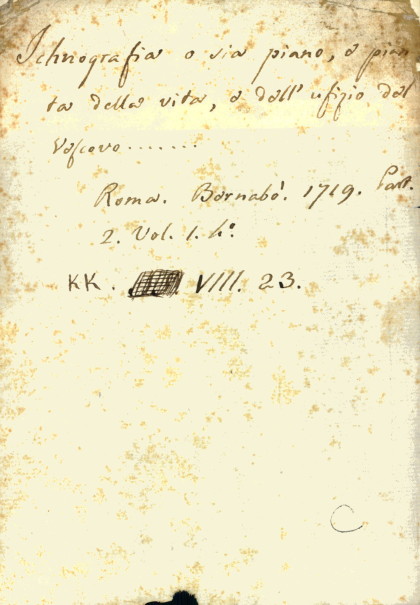 Ichnografia o sia piano, o pian
ta della vita, e dell' ufizio del
Vescovo.......
Roma. Bernabò. 1719. Part.
2. Vol. 1. 4.°
KK. VIII. 23.